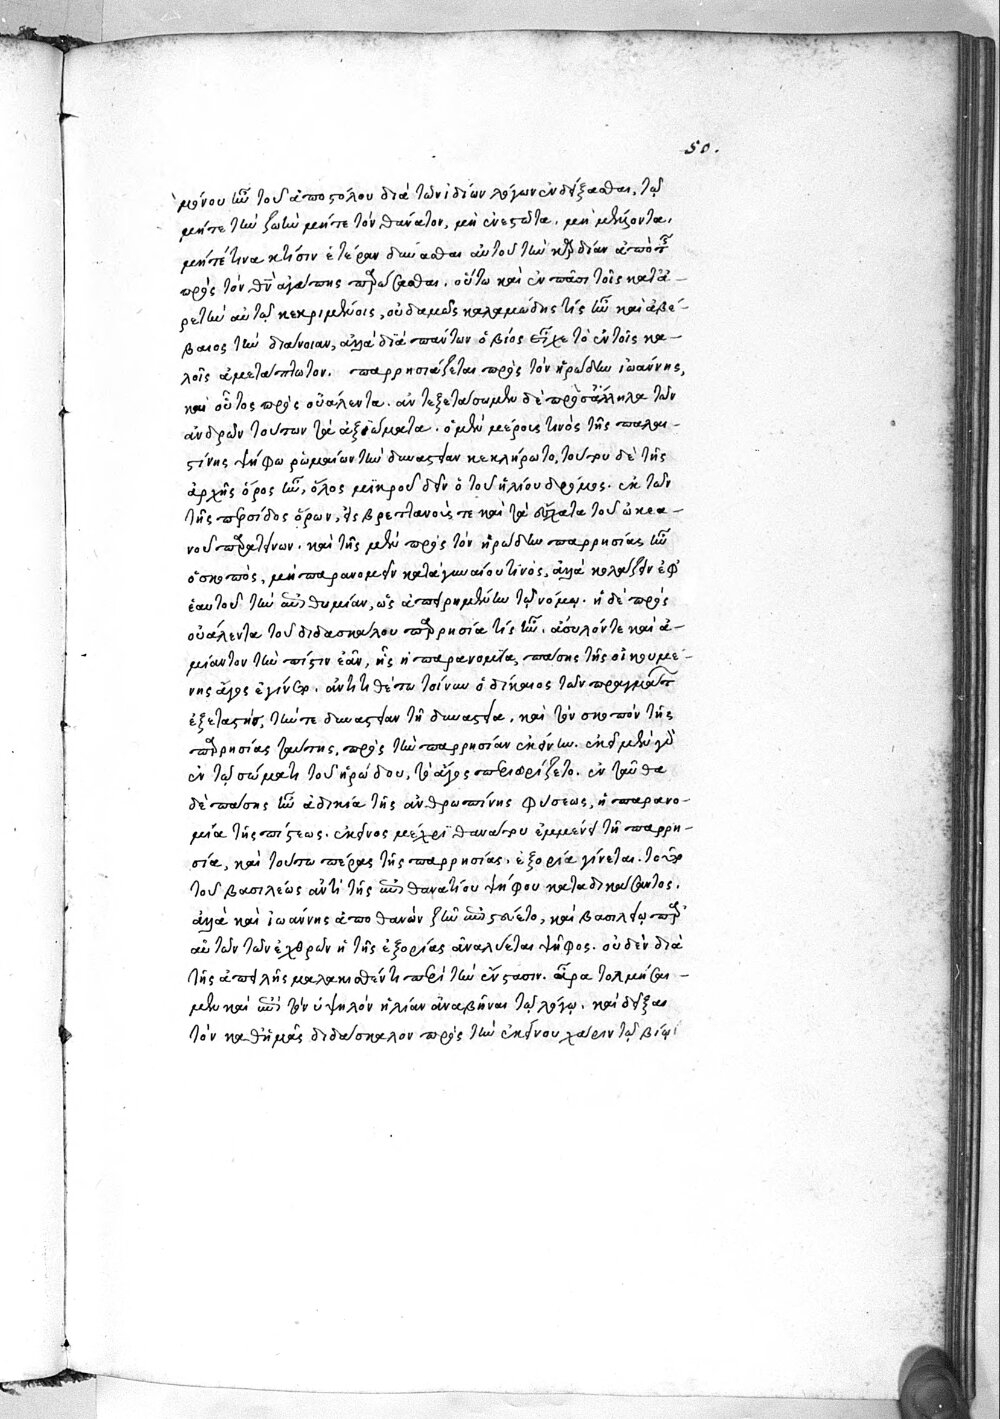 50.
μόνου ἦν τοῦ ἀποστόλου διὰ τῶν ἰδίων λόγων ἐνδείξασθαι, τῷ
μήτε τὴν ζωὴν μήτε τὸν θάνατον, μὴ ἐνεστῶτα, μὴ μέλλοντα,
μήτέ τινα κτίσιν ἑτέραν δύνασθαι αὐτοῦ τὴν καρδίαν ἀπὸ τῆς
πρὸς τὸν θν ἀγάπης
οὕτω καὶ ἐν πᾶσι τοῖς κατ' ἀ-
ρετὴν αὐτῷ κεκριμένοις, οὐδαμῶς καλαμώδης τίς ἦν καὶ ἀβέ-
βαιος τὴν διάνοιαν, ἀλλὰ διὰ πάντων ὁ βίος εἶχε τὸ ἐν τοῖς κα-
λοῖς ἀμετάπτωτον. παρρησιάζεται πρὸς τὸν ἡρώδην ἰωάννης,
καὶ οὗτος πρὸς οὐάλεντα. ἀντεξετάσωμεν δὲ πρὸς ἄλληλα τῶν
ἀνδρῶν τούτων τὰ ἀξιώματα. ὁ μὲν μέρους τινὸς τῆς παλαι-
στίνης ψήφῳ ῥωμαίων τὴν δυναστείαν κεκλήρωτο, τούτου δὲ τῆς
ἀρχῆς ὅρος ἦν, ὅλος μικροῦ δεῖν ὁ τοῦ ἡλίου δρόμος. ἐκ τῶν
τῆς περσίδος ὅρων, εἰς βρεττανούς τε καὶ τὰ ἔσχατα τοῦ ὠκεα-
νοῦ παρατείνων. καὶ τῆς μὲν πρὸς τὸν ἡρώδην παρρησίας ἦν
ὁ σκοπὸς, μὴ παρανομεῖν κατὰ γυναίου τινὸς, ἀλλὰ κολάζειν ἐφ'
ἑαυτοῦ τὴν ἐπιθυμίαν, ὡς ἀπειρημένην τῷ νόμῳ. ἡ δὲ πρὸς
οὐάλεντα τοῦ διδασκάλου παρρησία τίς ἦν. ἄσυλόν τε καὶ ἀ-
μίαντον τὴν πίστιν ἐᾶν, ἧς ἡ παρανομία, πάσης τῆς οἰκουμέ-
νης ἄγος ἐγίνετο. ἀντιτιθέτω τοίνυν ὁ δίκαιος τῶν πραγμάτων
ἐξεταστὴς, τήν τε δυναστείαν τῇ δυναστείᾳ, καὶ τὸν σκοπὸν τῆς
παρρησίας ταύτης, πρὸς τὴν παρρησίαν ἐκείνην. ἐκεῖ μὲν γὰρ
ἐν τῷ σώματι τοῦ ἡρώδου, τὸ ἄγος περιωρίζετο. ἐνταῦθα
δὲ πάσης ἦν ἀδικία τῆς ἀνθρωπίνης φύσεως, ἡ παρανο-
μία τῆς πίστεως. ἐκεῖνος μέχρι θανάτου ἐμμένει τῇ παρρη-
σίᾳ, καὶ τούτῳ πέρας τῆς παρρησίας, ἐξορία γίνεται. τοῦτο
τοῦ βασιλέως ἀντὶ τῆς ἐπὶ θανάτου ψήφου καταδικάσαντος.
ἀλλὰ καὶ ἰωάννης ἀποθανὼν ζῆν ἐπιστεύετο, καὶ βασιλείῳ παρ'
αὐτῶν τῶν ἐχθρῶν ἡ τῆς ἐξορίας ἀναλύεται ψῆφος. οὐδὲν διὰ
τῆς ἀπειλῆς μαλακισθέντι περὶ τὴν ἔνστασιν. ἆρα τολμήσαι-
μεν καὶ ἐπὶ τὸν ὑψηλὸν ἠλίαν ἀναβῆναι τῷ λόγῳ. καὶ δεῖξαι
τὸν καθ' ἡμᾶς διδάσκαλον πρὸς τὴν ἐκείνου χάριν τῷ βίῳ